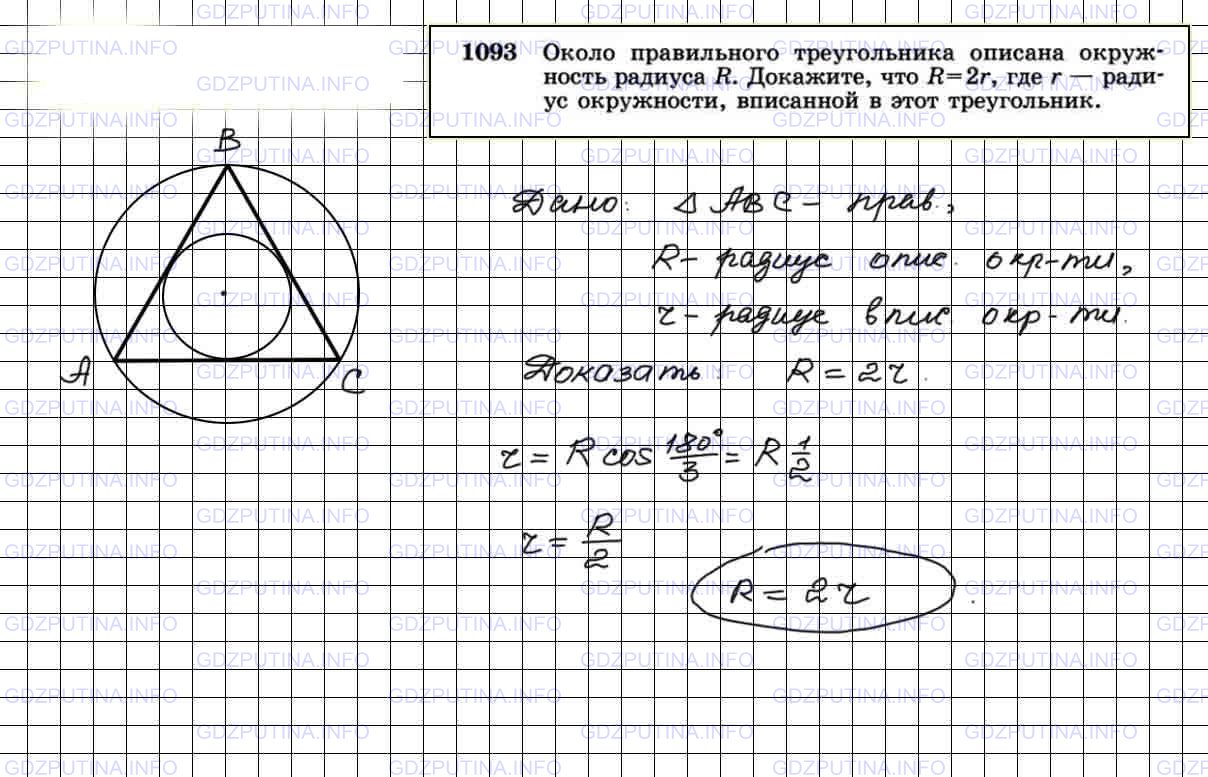 1093 Около правильного треугольника описана окруж-
ность радиуса R. Докажите, что R=2r, где r — ради-
ус окружности, вписанной в этот треугольник.
B
A
C
Дано: △ ABC - прав.,
R - радиус опис. окр-ти,
r - радиус впис. окр-ти.
Доказать: R = 2r.
r = R cos 180°/3 = R 1/2
r = R/2
R = 2r.
GDZPUTINA.INFO